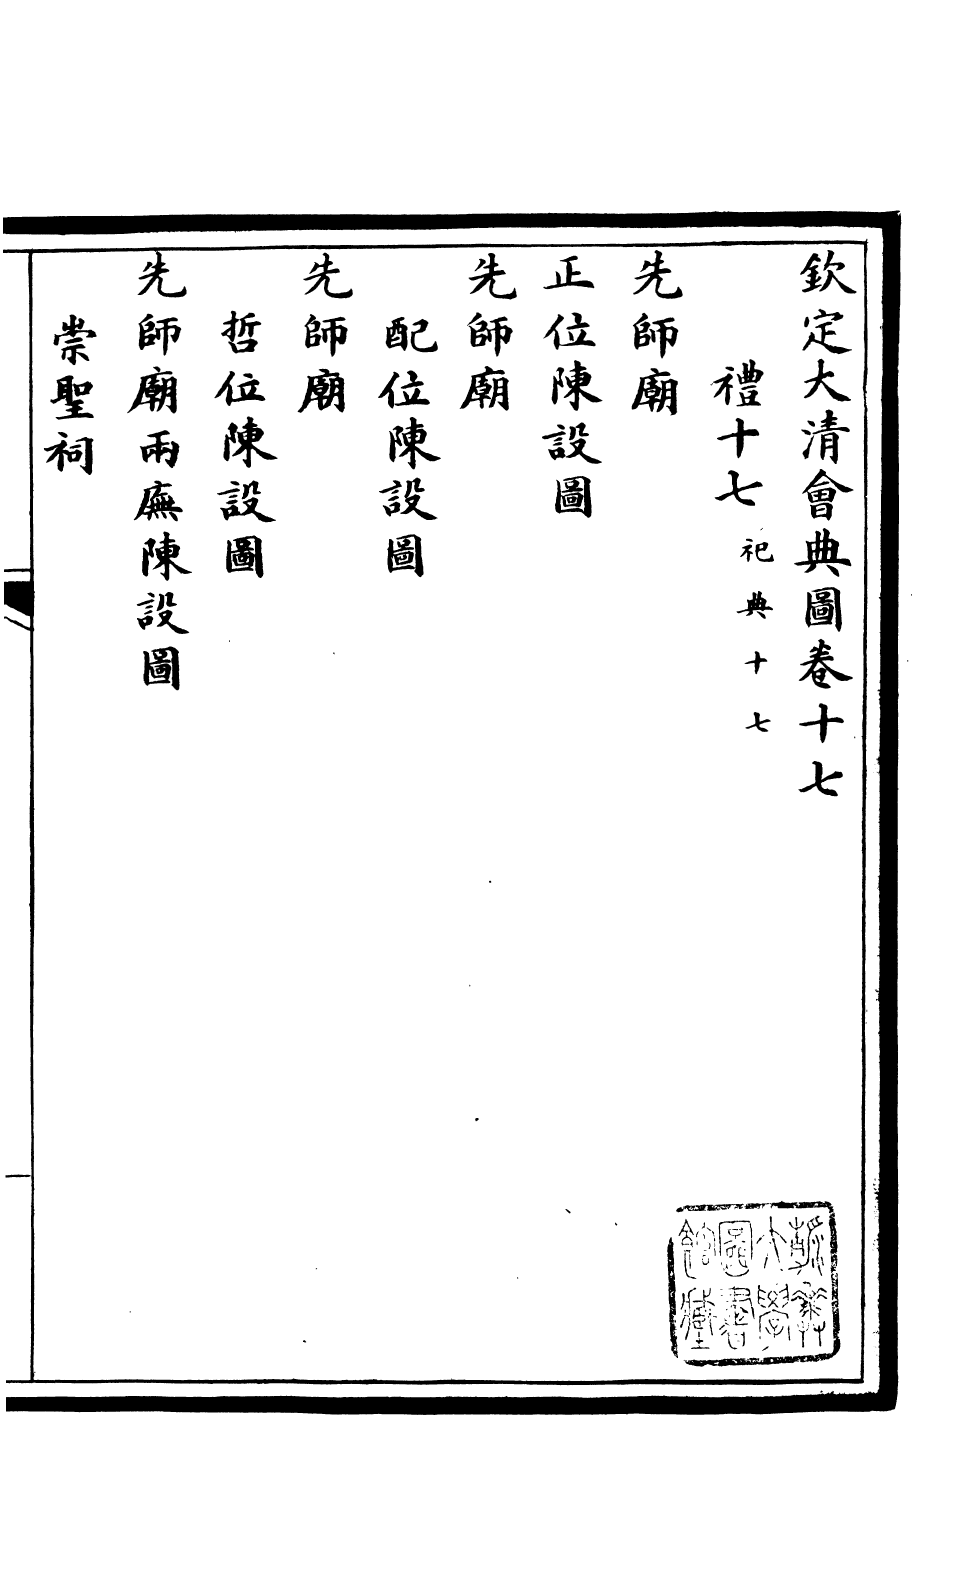 欽定大清會典圖卷十七
禮十七 祀典十七
先師廟
正位陳設圖
先師廟
配位陳設圖
先師廟
哲位陳設圖
先師廟兩廡陳設圖
崇聖祠
燕京大學圖書館藏